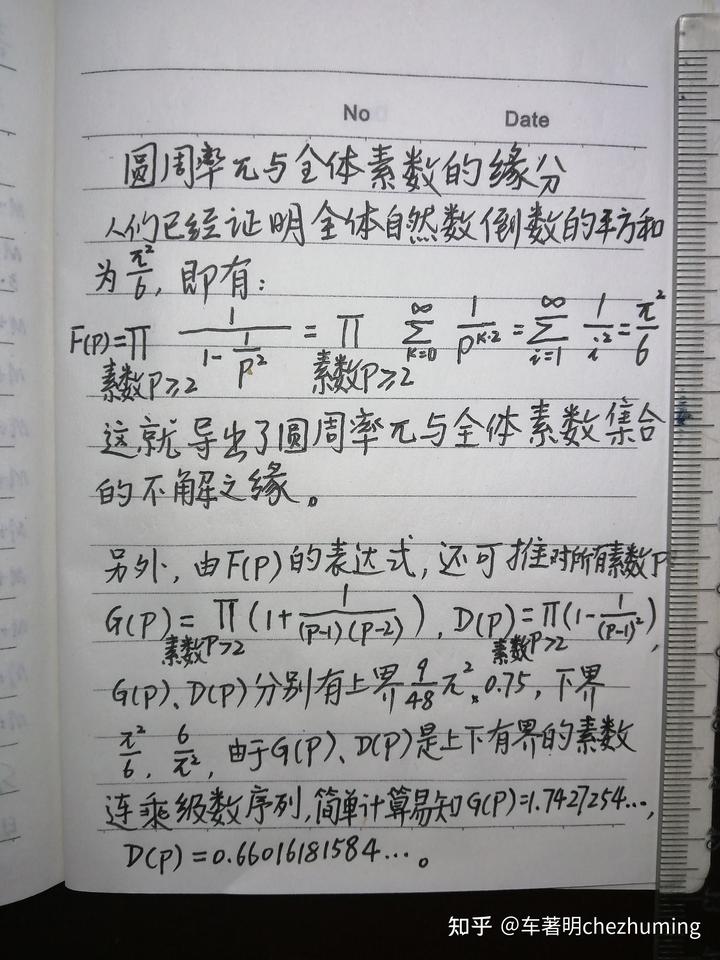 No Date
圆周率π与全体素数的缘分
人们已经证明全体自然数倒数的平方和
为π²/6,即有:
F(P)=∏ 1/(1-1/P²) = ∏ ∑ 1/P^(K·2) = ∑ 1/i² = π²/6
素数P≥2 素数P≥2 K=0 ∞ i=1 ∞
这就导出了圆周率π与全体素数集合
的不解之缘。
另外,由F(P)的表达式,还可推对所有素数P
G(P)=∏(1+1/((P-1)(P-2))),D(P)=∏(1-1/(P-1)²),
素数P>2 素数P>2
G(P)、D(P)分别有上界9/48π²、0.75,下界
π²/6、6/π²,由于G(P)、D(P)是上下有界的素数
连乘级数序列,简单计算易知G(P)=1.7427254…,
D(P)=0.66016181584…。
知乎 @车著明chezhuming